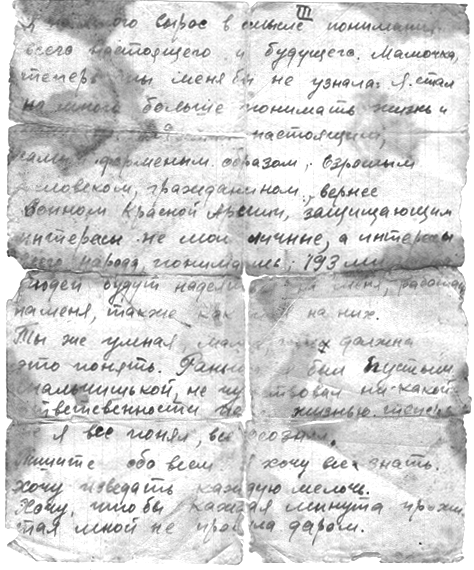 III
Я на много вырос в смысле понимания
всего настоящего и будущего. Мамочка,
теперь ты меня бы не узнала. Я стал
на много больше понимать жизнь и
настоящим,
форменным образом, взрослым
человеком, гражданином, вернее
воином Красной Армии, защищающим
интересы не мои личные, а интересы
всего народа, понимаешь, 193 ми
людей будут надея меня, работая
на меня, также как на них.
Ты же умная, мама, должна
это понять. Раньше я был пустым
мальчишкой, не чувствовал никакой
ответственности жизнью. теперь
я все понял, все осознал.
Пишите обо всем я хочу все знать.
Хочу изведать каждую мелочь.
Хочу, чтобы каждая минута прожи
тая мной не прошла даром.